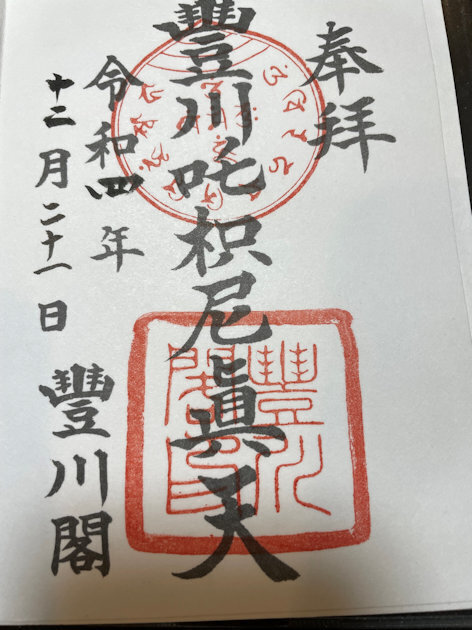 奉拝
豐川吒枳尼眞天
令和四年
十二月二十一日
豐川閣
豐川